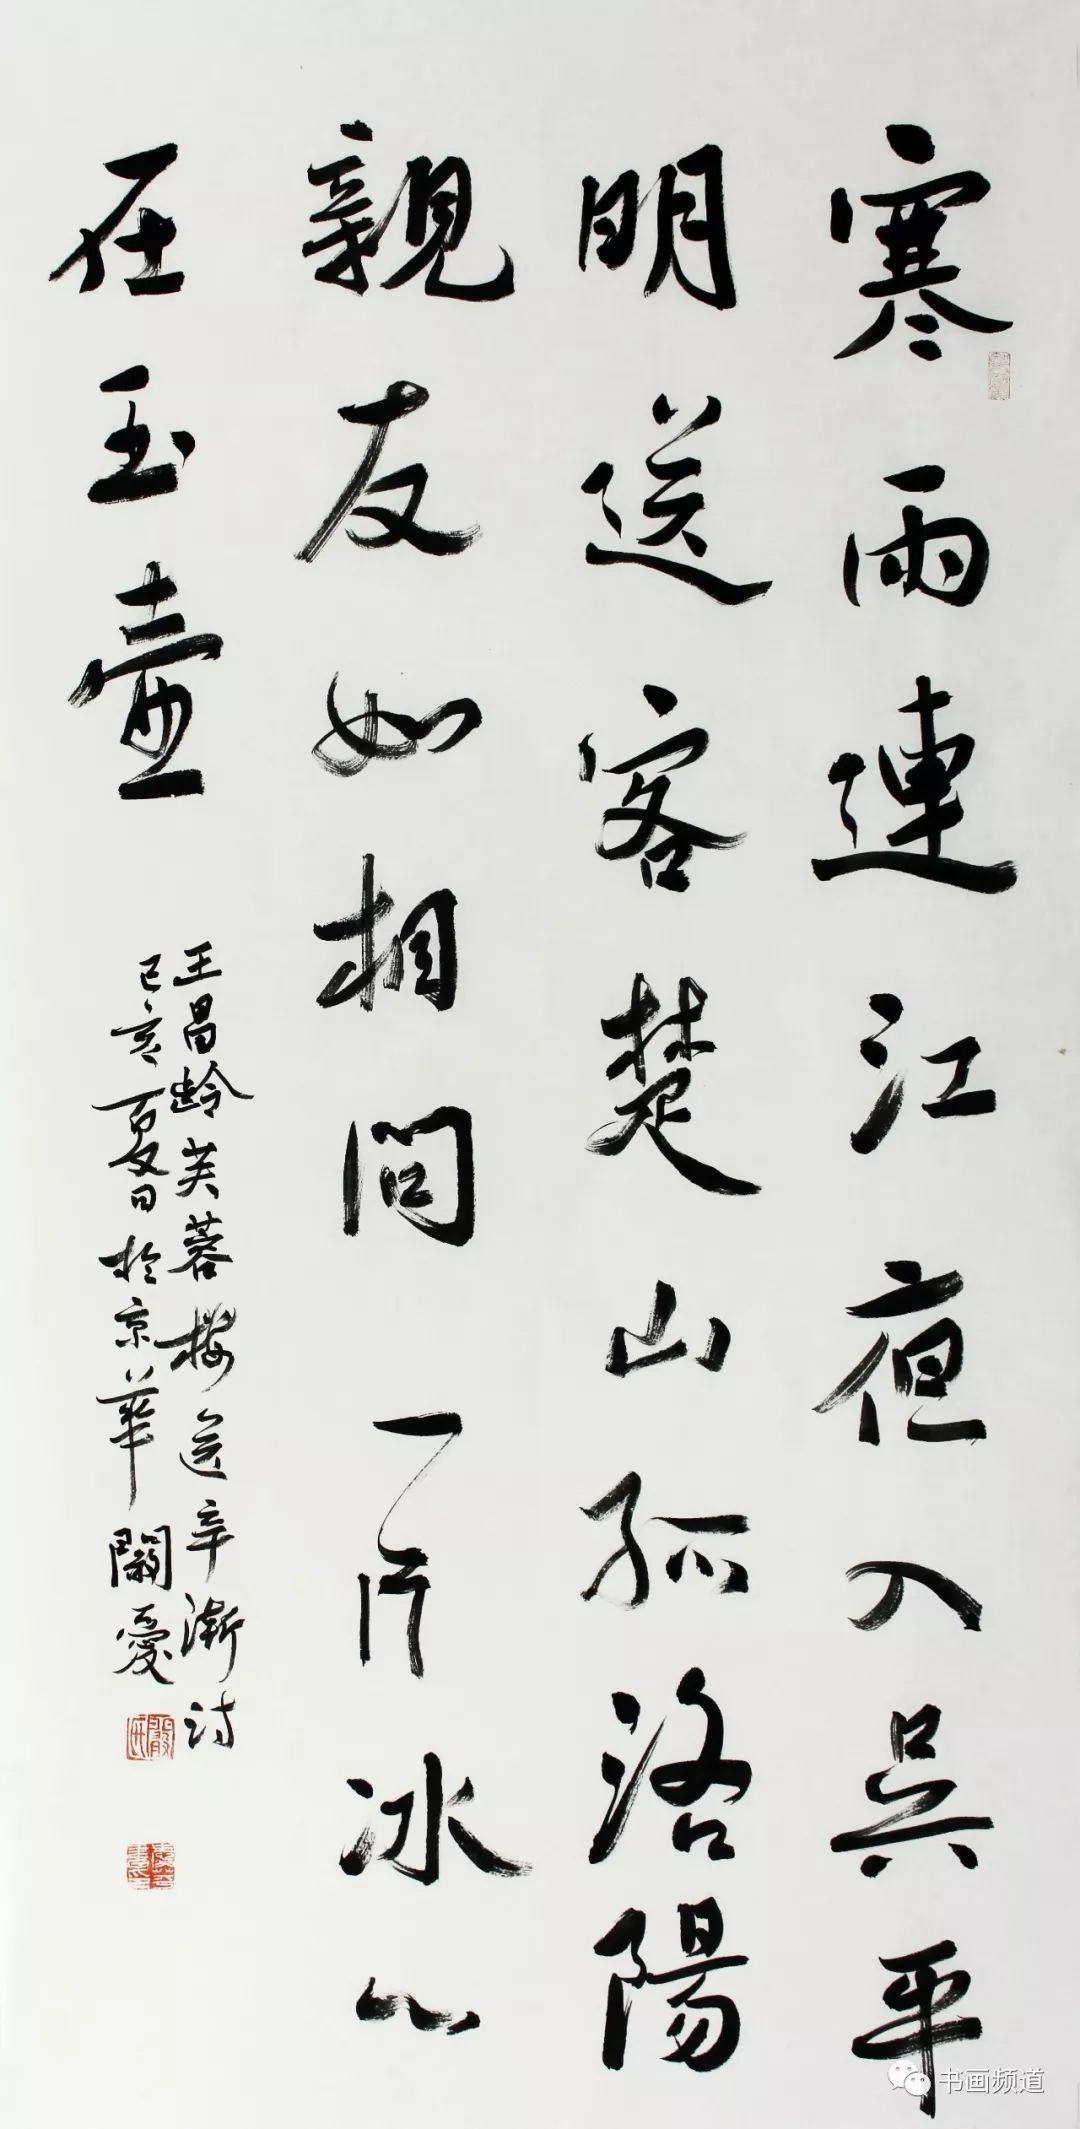 寒雨連江夜入吳平
明送客楚山孤洛陽
親友如相問一片冰心
在玉壺
王昌齡芙蓉樓送辛漸詩
己亥夏日於京華闞愛
书画频道